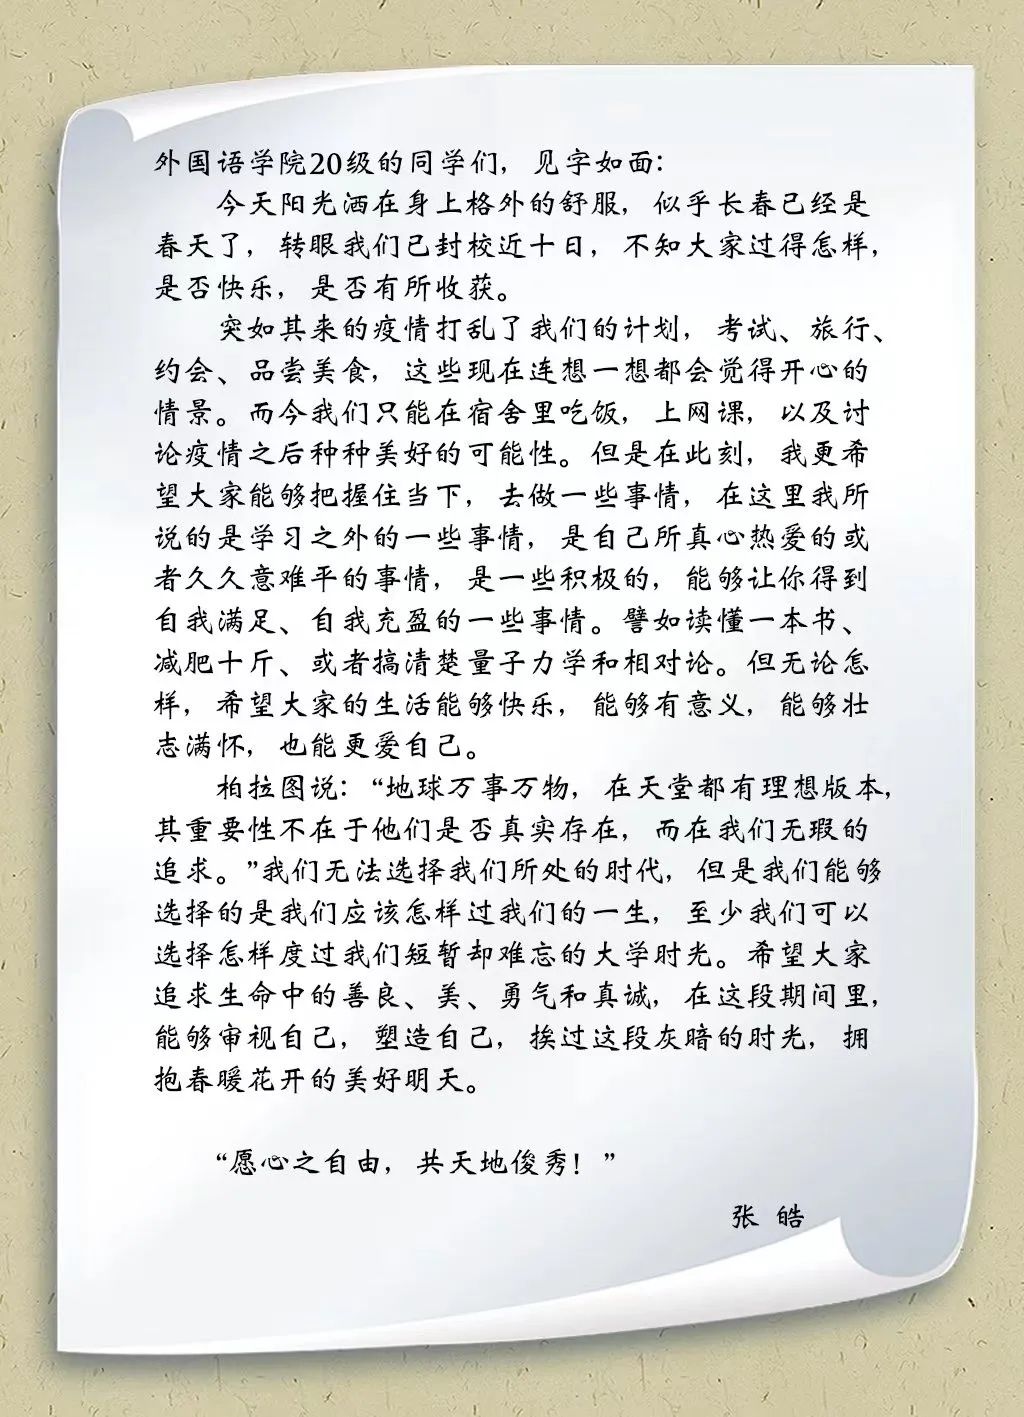 外国语学院20级的同学们，见字如面：
今天阳光洒在身上格外的舒服，似乎长春已经是
春天了，转眼我们已封校近十日，不知大家过得怎样，
是否快乐，是否有所收获。
突如其来的疫情打乱了我们的计划，考试、旅行、
约会、品尝美食，这些现在连想一想都会觉得开心的
情景。而今我们只能在宿舍里吃饭，上网课，以及讨
论疫情之后种种美好的可能性。但是在此刻，我更希
望大家能够把握住当下，去做一些事情，在这里我所
说的是学习之外的一些事情，是自己所真心热爱的或
者久久意难平的事情，是一些积极的，能够让你得到
自我满足、自我充盈的一些事情。譬如读懂一本书、
减肥十斤、或者搞清楚量子力学和相对论。但无论怎
样，希望大家的生活能够快乐，能够有意义，能够壮
志满怀，也能更爱自己。
柏拉图说：“地球万事万物，在天堂都有理想版本，
其重要性不在于他们是否真实存在，而在我们无瑕的
追求。”我们无法选择我们所处的时代，但是我们能够
选择的是我们应该怎样过我们的一生，至少我们可以
选择怎样度过我们短暂却难忘的大学时光。希望大家
追求生命中的善良、美、勇气和真诚，在这段期间里，
能够审视自己，塑造自己，挨过这段灰暗的时光，拥
抱春暖花开的美好明天。
“愿心之自由，共天地俊秀！”
张 皓